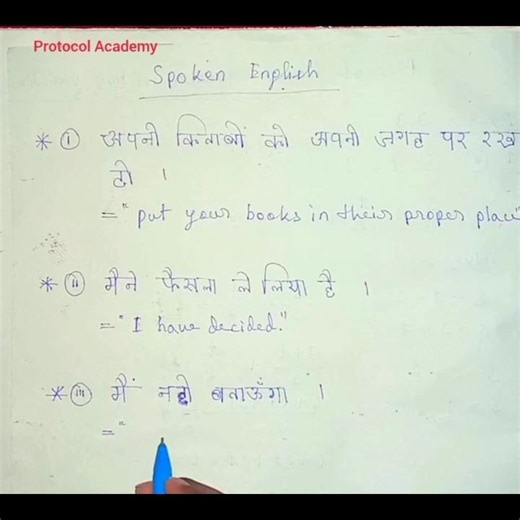 Protocol Academy
Spoken English
* ① अपनी किताबों को अपनी जगह पर रख
दो ।
= "put your books in their proper place"
* ⅱ मैने फैसला ले लिया है ।
= "I have decided."
* ⅲ मैं नही बताऊँगा ।
= "